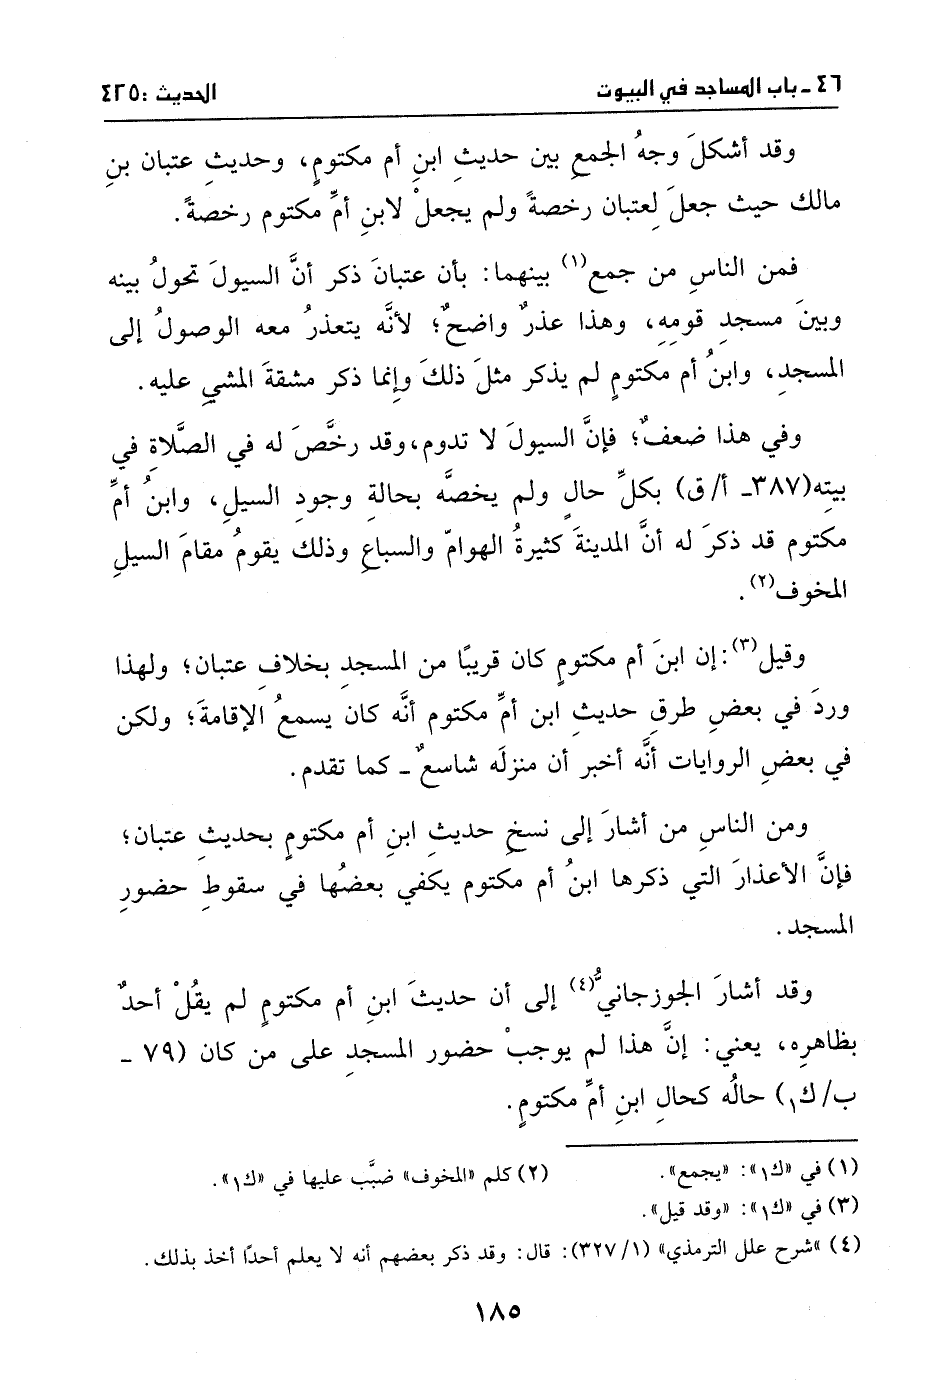 ٤٦ ـ باب المساجد في البيوت الحديث : ٤٢٥
وقد أشكلَ وجهُ الجمعِ بين حديثِ ابنِ أم مكتومٍ، وحديثِ عتبان بنِ
مالك حيث جعلَ لِعتبان رخصةً ولم يجعلْ لابنِ أمِّ مكتوم رخصةً.
فمن الناسِ من جمع(١) بينهما: بأن عتبانَ ذكر أنَّ السيولَ تحولُ بينه
وبينَ مسجدِ قومِهِ، وهذا عذرٌ واضحٌ؛ لأنَّه يتعذرُ معه الوصولُ إلى
المسجدِ، وابنُ أم مكتومٍ لم يذكر مثلَ ذلكَ وإنما ذكر مشقةَ المشيِ عليه.
وفي هذا ضعفٌ؛ فإنَّ السيولَ لا تدوم، وقد رخَّصَ له في الصَّلاةِ في
بيتِه(٣٨٧ـ أ/ق) بكلِّ حالٍ ولم يخصَّه بحالةِ وجودِ السيلِ، وابنُ أمِّ
مكتوم قد ذكرَ له أنَّ المدينةَ كثيرةُ الهوامّ والسباعِ وذلك يقومُ مقامَ السيلِ
المخوف(٢).
وقيل(٣): إن ابنَ أم مكتومٍ كان قريبًا من المسجدِ بخلافِ عتبان؛ ولهذا
وردَ في بعضِ طرقِ حديثِ ابن أمِّ مكتوم أنَّه كان يسمعُ الإقامةَ؛ ولكن
في بعضِ الروايات أنَّه أخبر أن منزلَه شاسعٌ ـ كما تقدم.
ومن الناسِ من أشارَ إلى نسخِ حديثِ ابنِ أم مكتومٍ بحديثِ عتبان؛
فإنَّ الأعذارَ التي ذكرها ابنُ أم مكتوم يكفي بعضُها في سقوطِ حضورِ
المسجد.
وقد أشارَ الجوزجانيُّ(٤) إلى أن حديثَ ابنِ أم مكتومٍ لم يقُلْ أحدٌ
بظاهرِه، يعني: إنَّ هذا لم يوجبْ حضور المسجدِ على من كان (٧٩ ـ
ب/ك١) حالُه كحالِ ابنِ أمِّ مكتومٍ.
(١) في «ك١»: «يجمع». (٢) كلم «المخوف» ضبَّب عليها في «ك١».
(٣) في «ك١»: «وقد قيل».
(٤) «شرح علل الترمذي» (١/ ٣٢٧): قال: وقد ذكر بعضهم أنه لا يعلم أحدًا أخذ بذلك.
١٨٥